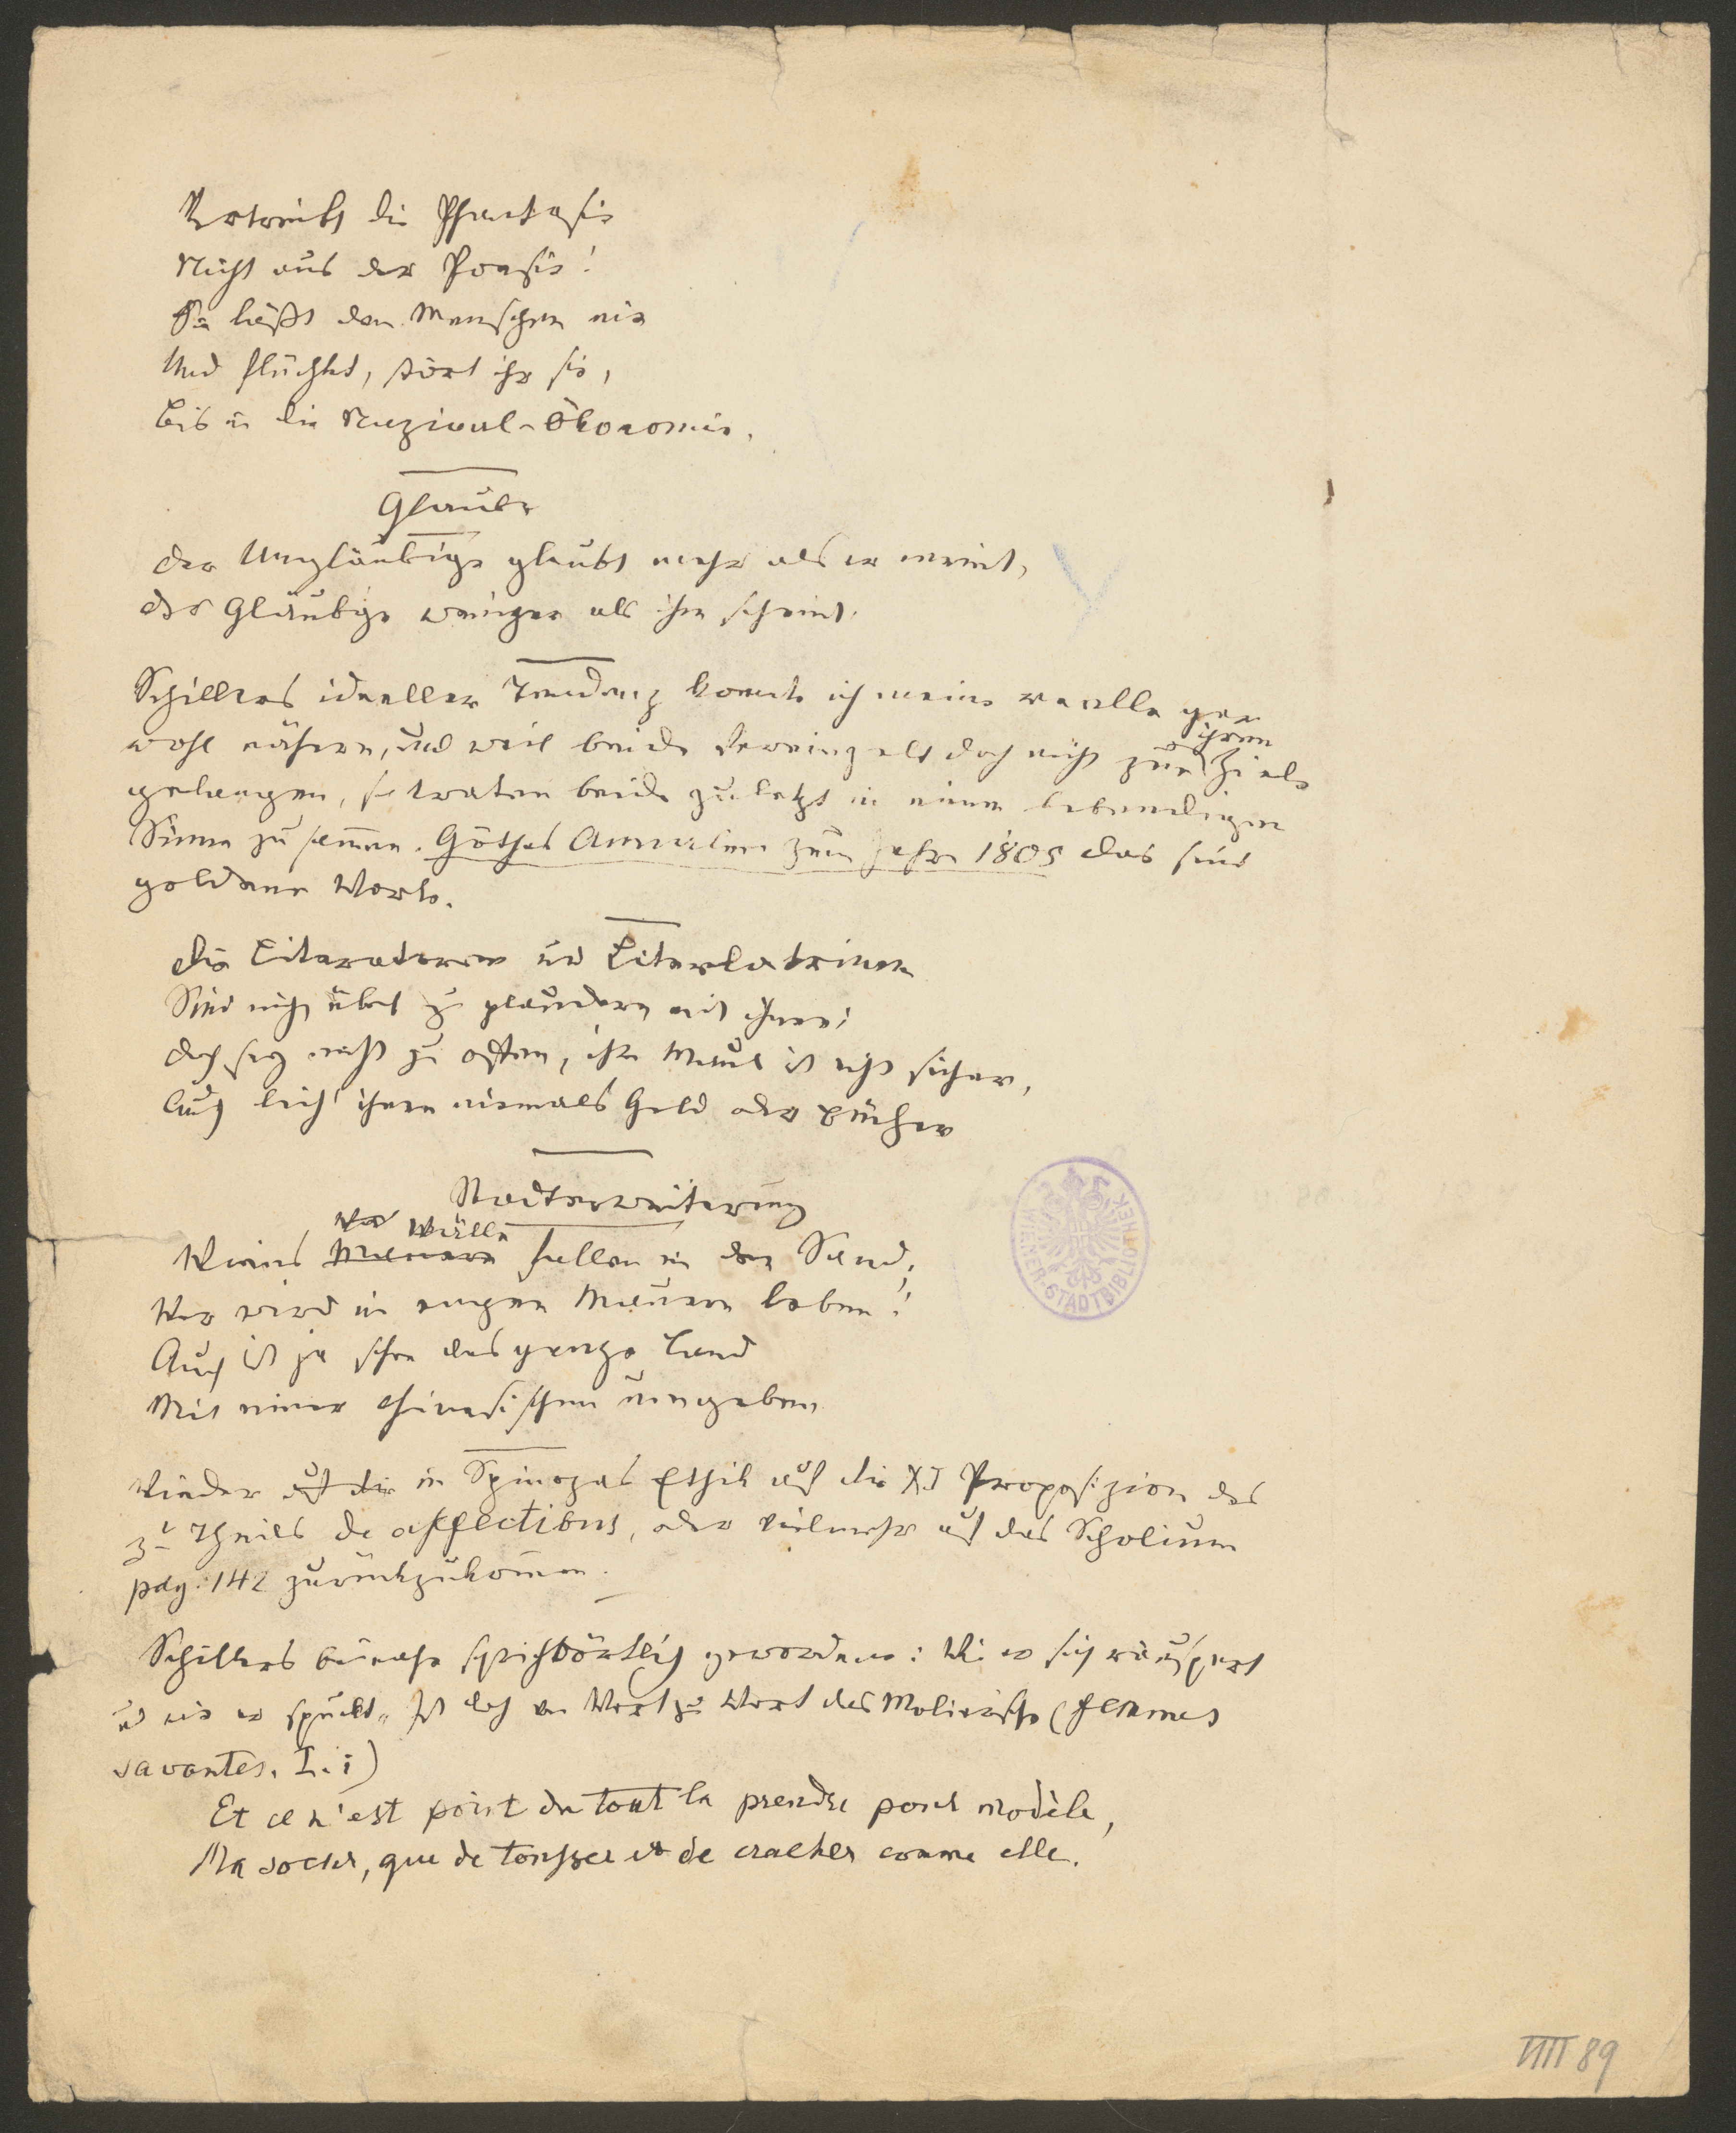 Vertreibt die Phantasie
Nicht aus der Poesie!
Sie läßt den Menschen nie
Und flüchtet, stört ihr sie,
Bis in die Nazional-Ökonomie.
Glaube
Der Ungläubige glaubt mehr als er meint,
Der Gläubige weniger als ihm scheint.
Schillers ideeller Tendenz konnte ich meine reelle gar
wohl nähern, und weil beide vereinzelt doch nicht zu ihrem Ziele
gelangen, so traten beide zuletzt in einem lebendigen
Sinne zusam̄en. Göthes Annalen zum Jahr 1805 das sind
goldene Worte.
Die Literatoren und Literlatrinen
Sind nicht übel zu plaudern mit ihnen;
Doch sey nicht zu offen, ihr Maul ist nicht sicher,
Auch leih' ihnen niemals Geld oder Bücher
Stadterweiterung
Wälle
Wiens Mauern fallen in den Sand;
Wer wird in engen Mauern leben!
Auch ist ja schon das ganze Land
Mit einer chinesischen umgeben
Wieder auf die in Spinozas Ethik auf die XI Proposizion des
3t Theiles de affectibus, oder vielmehr auf das Scholium
pag. 142 zurückzukom̄en.
Schillers beinahe sprichwörtlich gewordenes: Wie er sich räuspert
und wie er spuckt" ist doch von Wort zu Wort das Molierische (femmes
savantes. I. i)
Et ce n'est point du tout la prendre pour modèle,
Ma soeur, que de tousser et de cracher comme elle.
WIENER STADTBIBLIOTHEK
89